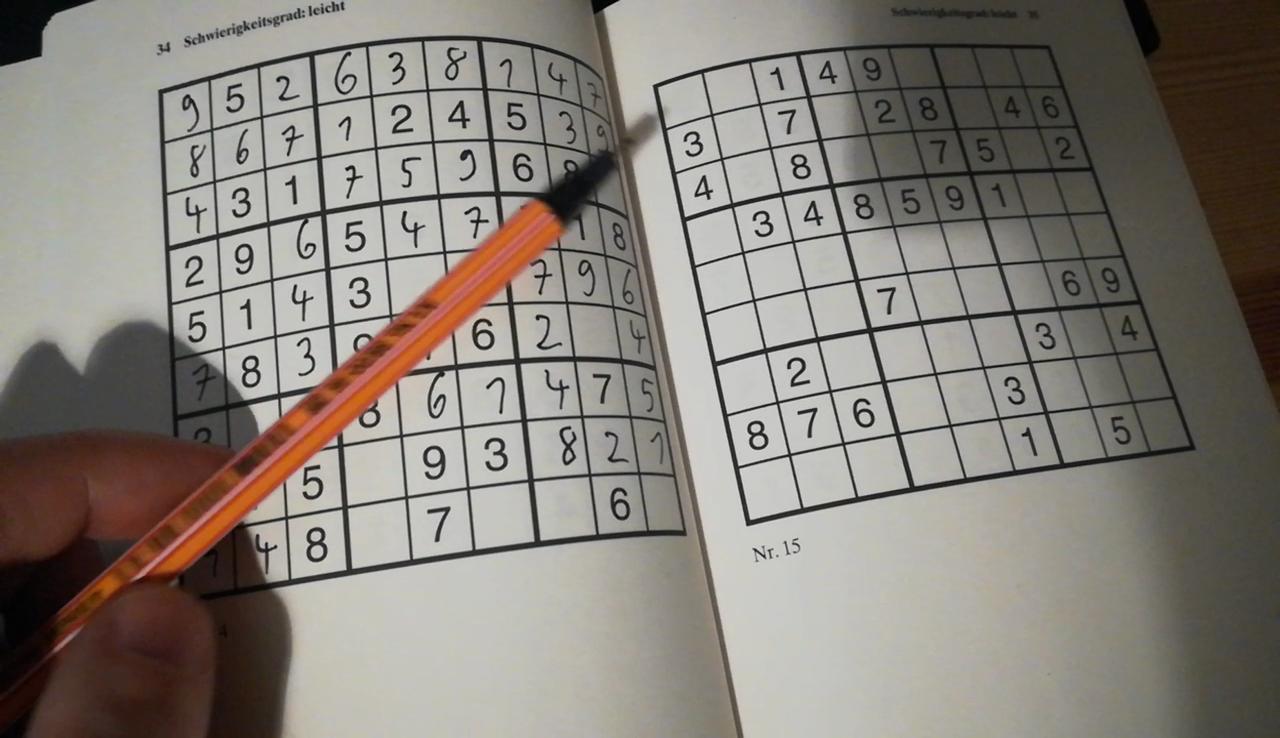 34 Schwierigkeitsgrad: leicht
9 5 2 6 3 8 1 4 7
8 6 7 1 2 4 5 3 9
4 3 1 7 5 9 6 8
2 9 6 5 4 7 1 8
5 1 4 3 7 9 6
7 8 3 6 2 4
8 6 1 4 7 5
5 9 3 8 2 1
1 4 8 7 6
4
Schwierigkeitsgrad: leicht 35
1 4 9
3 7 2 8 4 6
4 8 7 5 2
3 4 8 5 9 1
7 6 9
2 3 4
8 7 6 3
1 5
Nr. 15